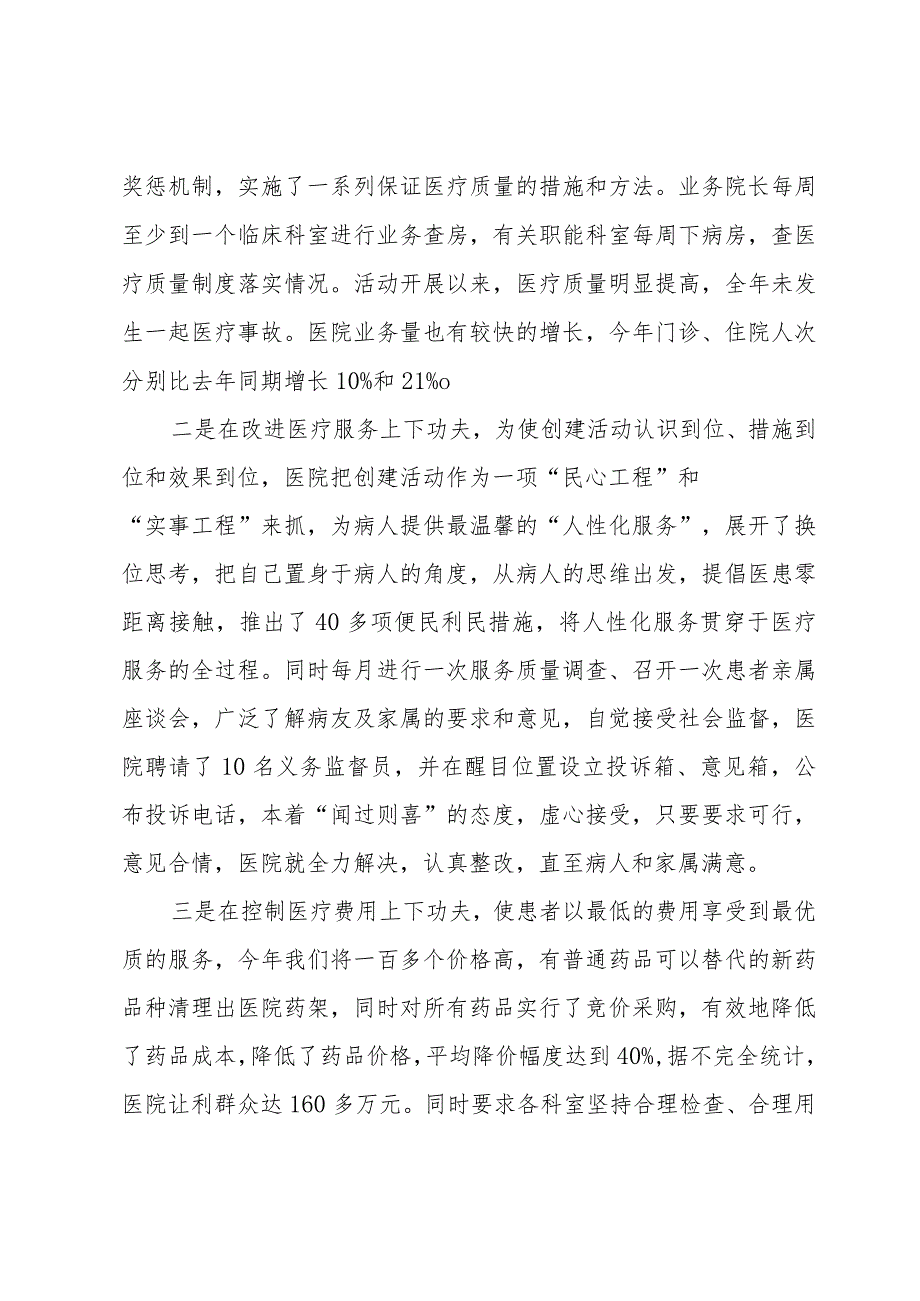 奖惩机制，实施了一系列保证医疗质量的措施和方法。业务院长每周
至少到一个临床科室进行业务查房，有关职能科室每周下病房，查医
疗质量制度落实情况。活动开展以来，医疗质量明显提高，全年未发
生一起医疗事故。医院业务量也有较快的增长，今年门诊、住院人次
分别比去年同期增长 10%和 21%o
二是在改进医疗服务上下功夫，为使创建活动认识到位、措施到
位和效果到位，医院把创建活动作为一项“民心工程”和
“实事工程”来抓，为病人提供最温馨的“人性化服务”，展开了换
位思考，把自己置身于病人的角度，从病人的思维出发，提倡医患零
距离接触，推出了 40 多项便民利民措施，将人性化服务贯穿于医疗
服务的全过程。同时每月进行一次服务质量调查、召开一次患者亲属
座谈会，广泛了解病友及家属的要求和意见，自觉接受社会监督，医
院聘请了 10 名义务监督员，并在醒目位置设立投诉箱、意见箱，公
布投诉电话，本着“闻过则喜”的态度，虚心接受，只要要求可行，
意见合情，医院就全力解决，认真整改，直至病人和家属满意。
三是在控制医疗费用上下功夫，使患者以最低的费用享受到最优
质的服务，今年我们将一百多个价格高，有普通药品可以替代的新药
品种清理出医院药架，同时对所有药品实行了竞价采购，有效地降低
了药品成本，降低了药品价格，平均降价幅度达到 40%，据不完全统计，
医院让利群众达 160 多万元。同时要求各科室坚持合理检查、合理用